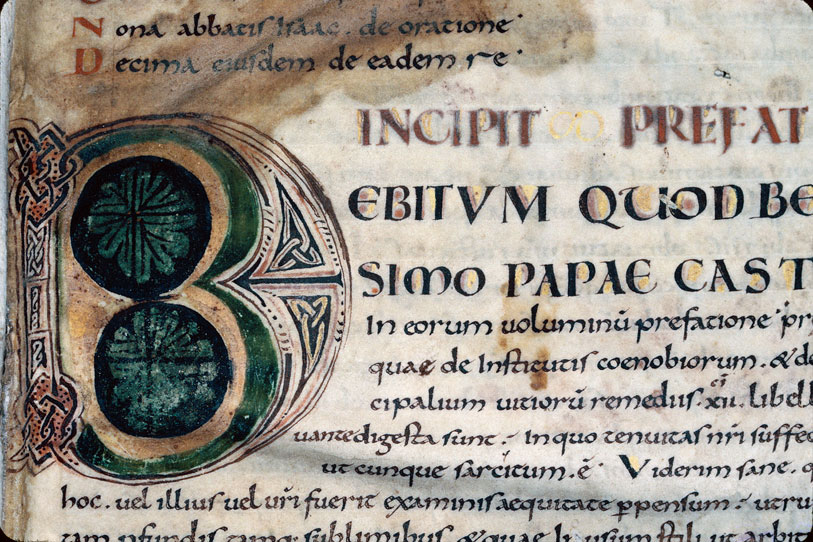 N ona abbatis Isaac. de oratione
D ecima eiusdem de eadem re
INCIPIT PREFAT
DEBITVM QUOD BE
SIMO PAPAE CAST
In eorum uoluminū prefatione pr
quae de Institutis coenobiorum. & de
cipalium uitiorū remediis. xii. libell
uante digesta sunt. In quo tenuitas nr̄i suffec
ut cunque sarcitum. ē. Viderim sane. q
hoc. uel illius uel ur̄i fuerit examinis aequitate ppensum. utru
tam profundis tamq; sublimibus. & quae